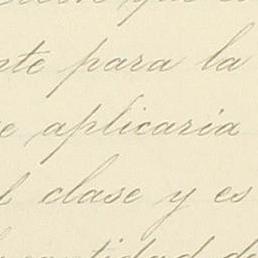 nte para la
e aplicaria
l clase y es
cantidad de